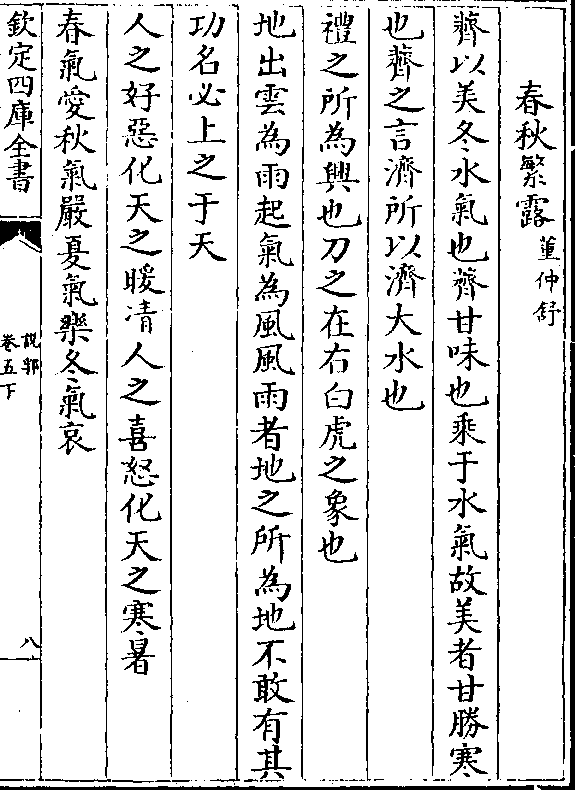 春秋繁露董仲舒
薺以美冬水氣也薺甘味也乘于水氣故美者甘勝寒
也薺之言濟所以濟大水也
禮之所為興也刀之在右白虎之象也
地出雲為雨起氣為風風雨者地之所為地不敢有其
功名必上之于天
人之好惡化天之暖凊人之喜怒化天之寒暑
春氣愛秋氣嚴夏氣樂冬氣哀
欽定四庫全書
說郛
卷五下
八